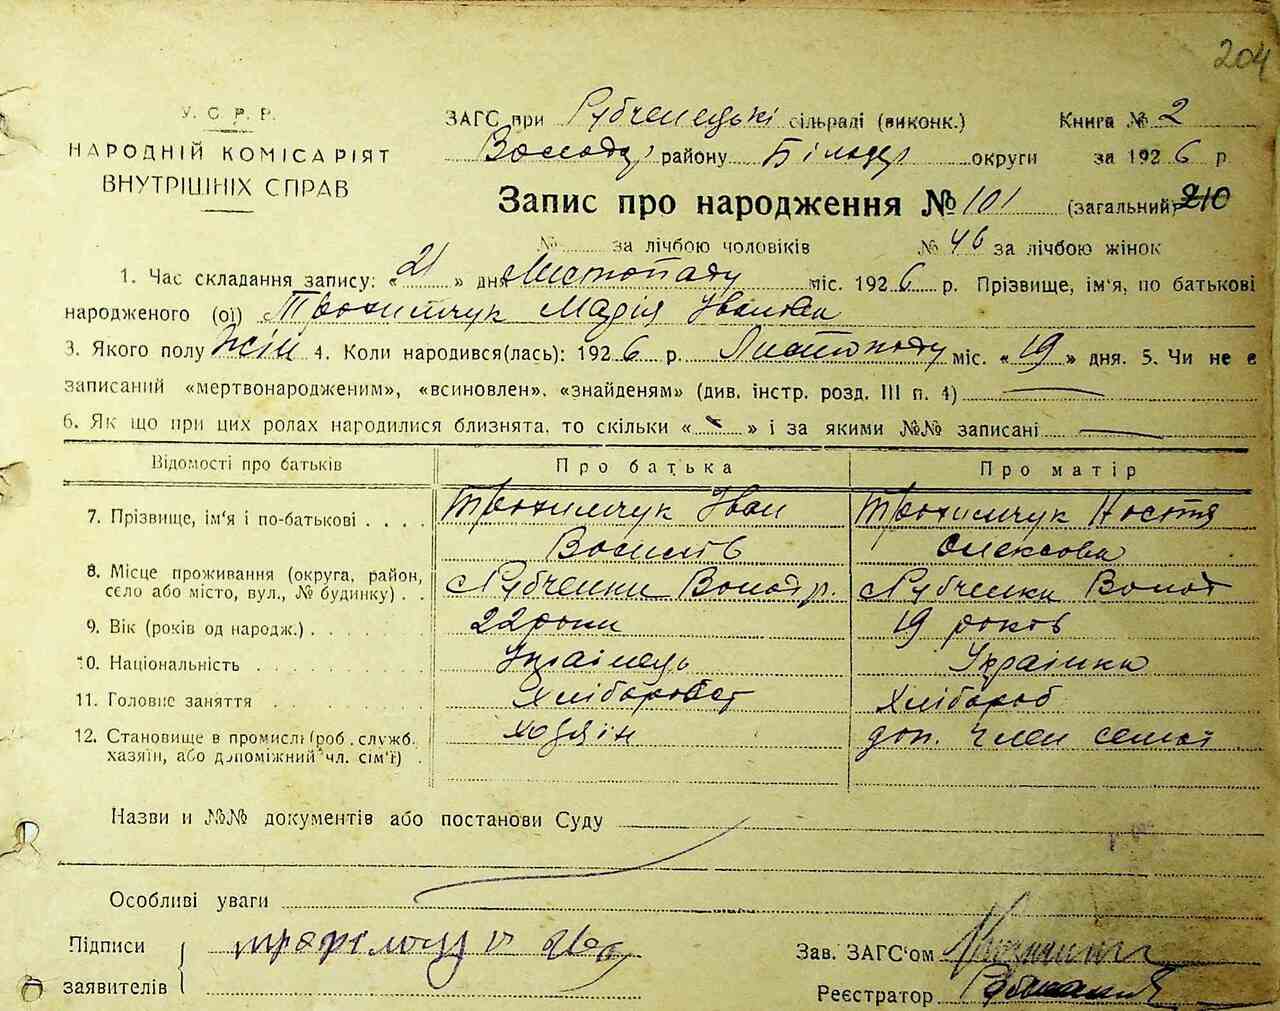 204
У. С. Р. Р.
НАРОДНІЙ КОМІСАРІЯТ
ВНУТРІШНІХ СПРАВ
ЗАГС при Рубченецькі сільраді (виконк.) Книга № 2
Володар району Білоцер округи за 1926 р.
Запис про народження № 101 (загальний) 210
№ за лічбою чоловіків № 46 за лічбою жінок
1. Час складання запису: «21» дня Листопаду міс. 1926 р. Прізвище, ім'я, по батькові
народженого (ої) Трохимчук Марія Іванівна
3. Якого полу Жін 4. Коли народився(лась): 1926 р. Листопаду міс. «19» дня. 5. Чи не є
записаний «мертвонародженим», «всиновлен», «знайденям» (див. інстр. розд. III п. 4)
6. Як що при цих ролах народилися близнята, то скільки « » і за якими №№ записані
Відомості про батьків Про батька Про матір
7. Прізвище, ім'я і по-батькові . . . . Трохимчук Іван Трохимчук Настя
Василів Олексова
8. Місце проживання (округа, район, с Рубченки Волод р. с Рубченки Волод
село або місто, вул., № будинку) . .
9. Вік (років од народж.) 22 роки 19 років
10. Національність Українець Українка
11. Головне заняття Хлібороб
12. Становище в промислі (роб. служб. хазяїн доп. член семьї
хазяїн, або допоміжний чл. сім'ї) .
Назви и №№ документів або постанови Суду
Особливі уваги
Підписи
заявителів
Зав. ЗАГС'ом
Реєстратор